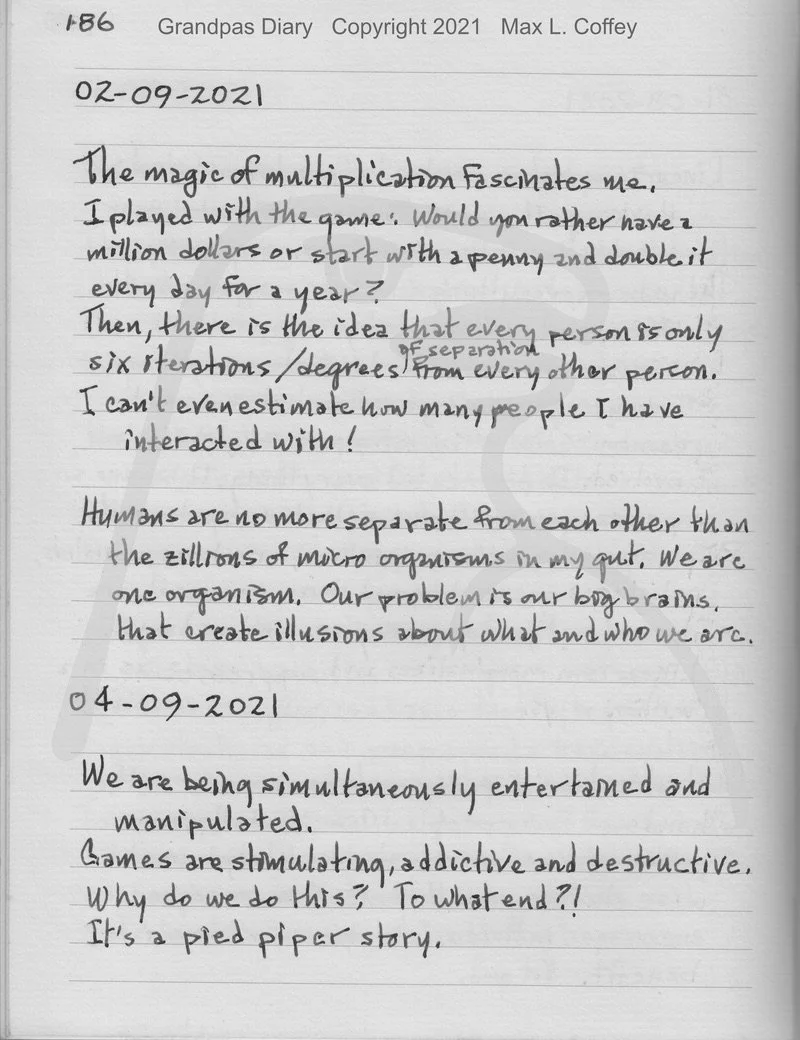 186 Grandpas Diary Copyright 2021 Max L. Coffey
02-09-2021
The magic of multiplication fascinates me.
I played with the game: Would you rather have a
million dollars or start with a penny and double it
every day for a year?
Then, there is the idea that every person is only
of separation
six iterations/degrees from every other person.
I can't even estimate how many people I have
interacted with!
Humans are no more separate from each other than
the zillions of micro organisms in my gut. We are
one organism. Our problem is our big brains,
that create illusions about what and who we are.
04-09-2021
We are being simultaneously entertained and
manipulated.
Games are stimulating, addictive and destructive.
Why do we do this? To what end?!
It's a pied piper story.